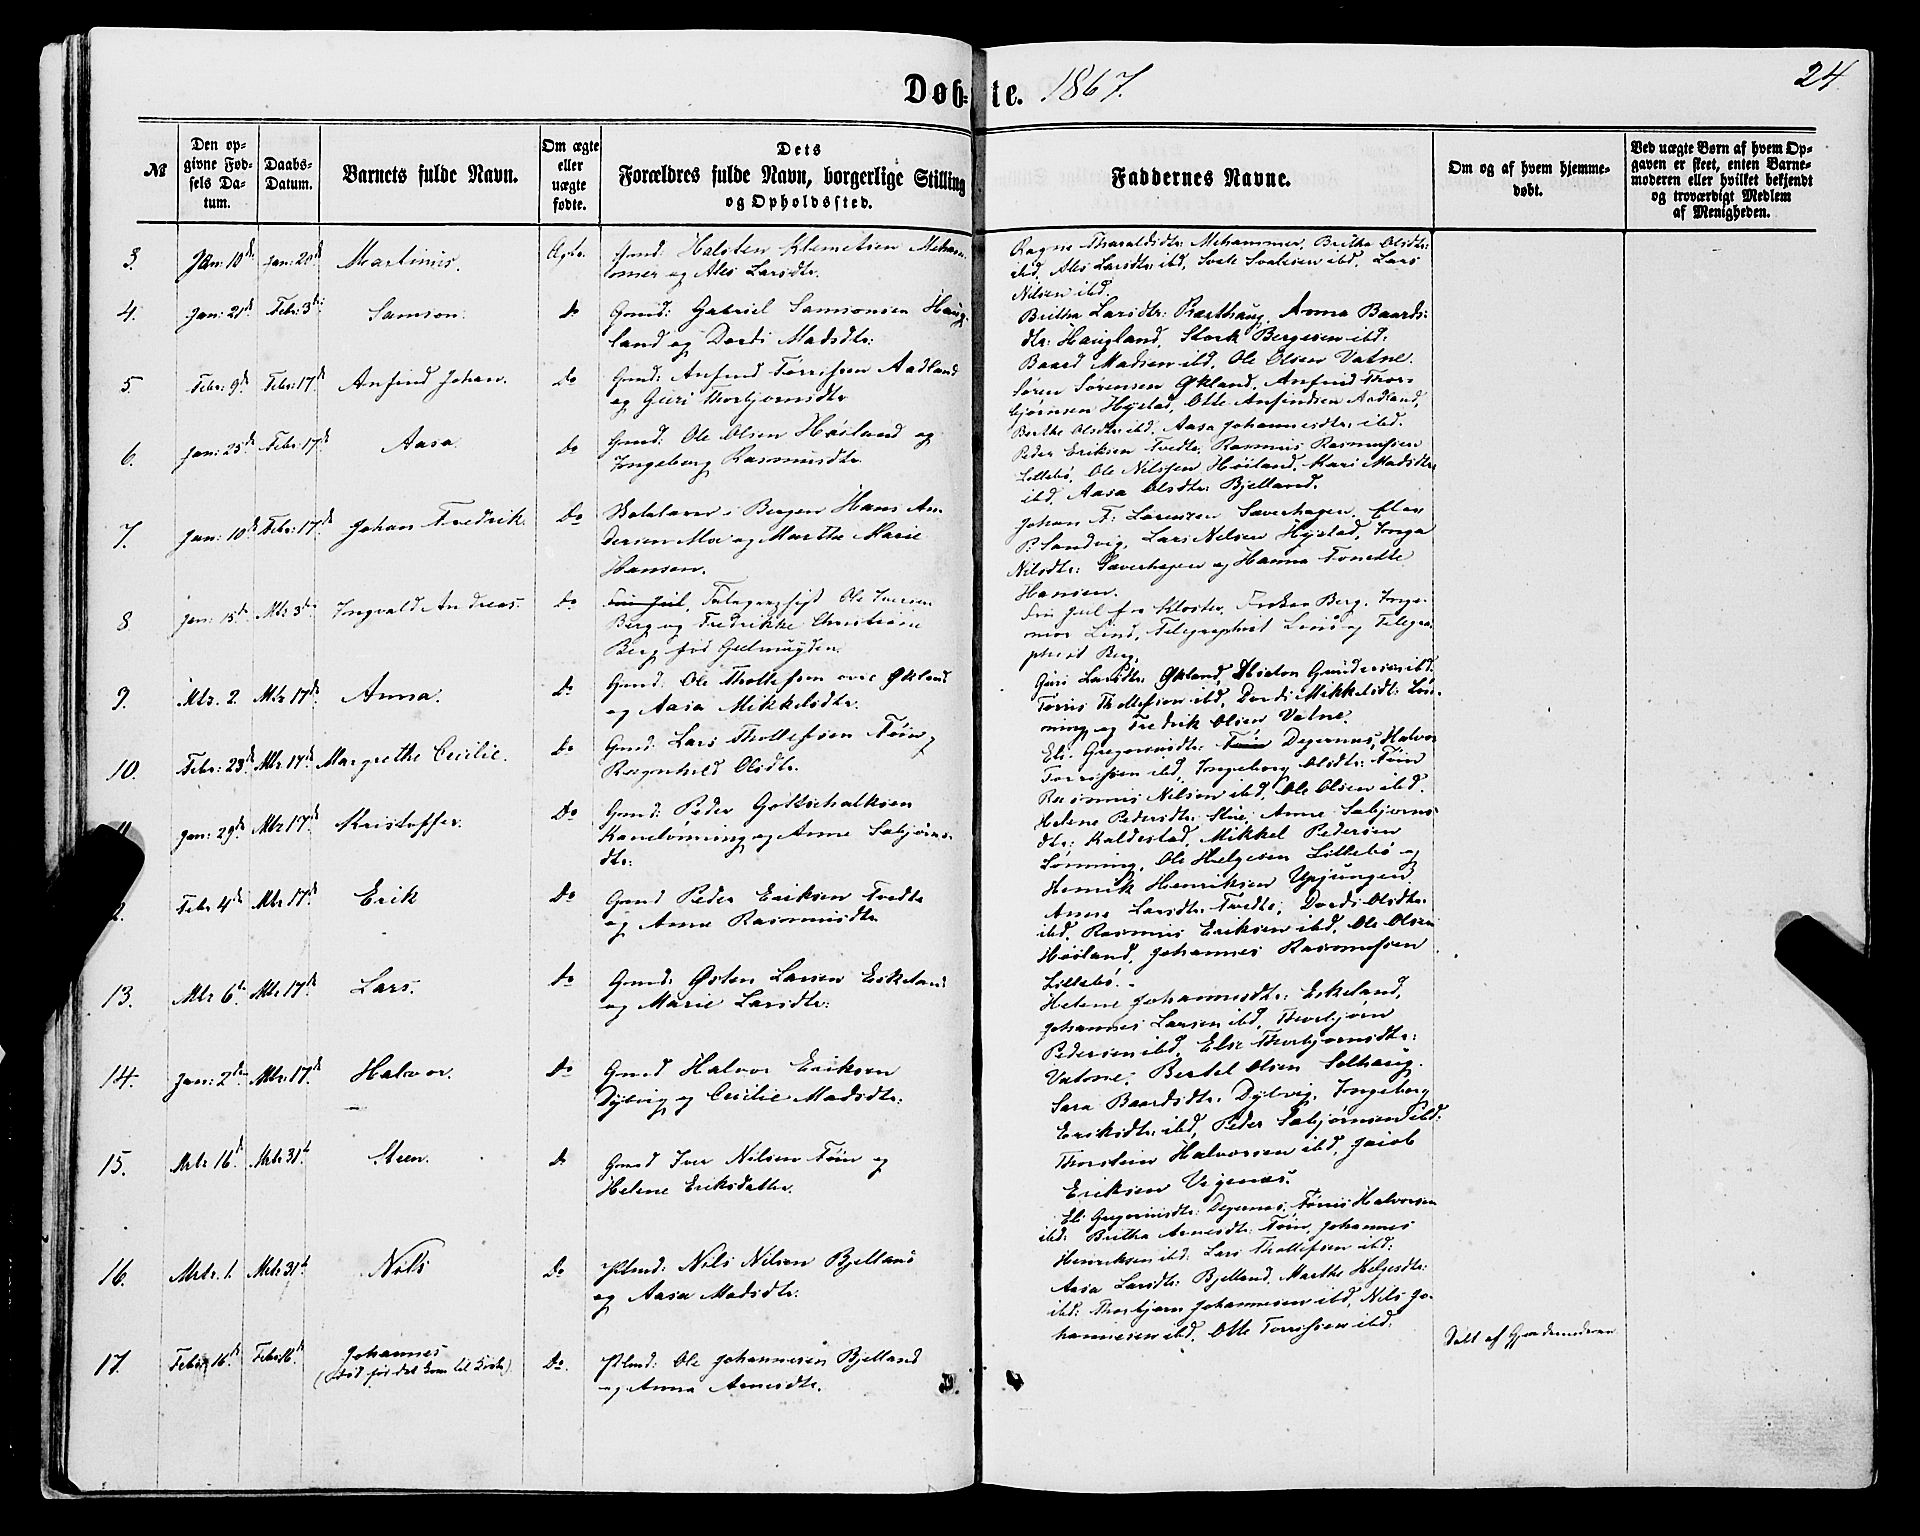 Døb=te. 1867.
24
№
Den op=
givne Fød=
sels Da=
tum.
Daabs=
Datum.
Barnets fulde Navn.
Om ægte
eller
uægte
fødte.
Dets
Forældres fulde Navn, borgerlige Stilling
og Opholdssted.
Faddernes Navne.
Om og af hvem hjemme=
døbt.
Ved uægte Børn af hvem Op=
gaven er skeet, enten Barne=
moderen eller hvilket bekjendt
og troværdigt Medlem
af Menigheden.
3. Jan: 10de Jan: 20de Martinus. Ægte. Gmd: Halsten Klemetsen Meham-
mer og Ales Larsdtr.
Ragne Tharaldsdtr: Mehammer, Britha Olsdtr:
ibd, Ales Larsdtr: ibd, ibd, Lars
Nilsen ibd.
4. Jan: 21de Febr: 3de Samson. Do Gmd: Gabriel Samsonsen Haug-
land og Dordi Madsdtr:
Britha Larsdtr: Anna Baards-
dtr: Haugland, Stork Bergesen ibd:
Baard Madsen ibd, Ole Olsen Vatne.
5. Febr: 9de Febr: 17de Anfind Johan. Do Gmd: Anfind Torrissen Aadland
og Guri Thorbjørnsdtr
Søren Sørensen Økland, Anfind Thor-
bjørnsen Hystad, Otte Anfindsen Aadland,
Berthe Olsdtr: ibd, Aasa Johannesdtr: ibd.
6. Jan: 25de Febr: 17de Aasa. Do Gmd: Ole Olsen Høiland og
Ingeborg Rasmusdtr.
Peder Eriksen Tvedte, Rasmus Rasmussen
Lillebø, Ole Nilssen Høiland, Kari Madsdtr:
ibd, Aasa Olsdtr: Bjelland.
7. Jan: 10de Febr: 17de Johan Fredrik. Do i Bergen Hans An-
dersen Moe og Marthe Marie
Hansen.
Johan F: Lorenzen Saverhagen,
P. Sandvig, Lars Nilsen Hystad, Inga
Nilsdtr: Saverhagen og Hanna Tonette
Hansen.
8 Jan: 15de Mts 3de Ingvald Andreas. Do Ole Iversen
Berg og Fredrikke Christiane
Berg fød Geelmuyden.
Kloster, Frøken Berg, Inge-
niør Lind, Telegraphist og Telegra-
phist Berg.
9. Mts. 2. Mts 17de Anna. Do Gmd: Ole Thollefsen Økland
og Aasa Mikkelsdtr.
Guri Larsdtr: Økland, Gundersen ibd.
Torris Thollefsen ibd, Dordi Mikkelsdtr: Løn-
ning og Fredrik Olsen Vatne.
10. Febr: 23de Mts 17de Margrethe Cecilie. Do Gmd: Lars Thollefsen Føien og
Ragnhild Olsdtr.
Eli Gregoriusdtr: Degernæs, Halvor
Torrissen ibd, Ingeborg Olsdtr: Føien
Rasmus Nilsen ibd, Ole Olsen ibd.
11. Jan: 29de Mts 17de Kristoffer. Do Gmd: Peder Gottschalksen
Kanelønning og Anne Sæbjørns-
dtr:
Helene Pedersdtr: Anne Sæbjørns-
dtr: Kaldestad, Mikkel Pedersen
Lønning, Ole Helgesen Lillebø og
Henrik Henriksen
2. Febr 4de Mts 17de Erik Do Gmd Peder Eriksen Tvedte
og Anne Rasmusdtr.
Anne Larsdtr: Tvedte, Dordi Olsdtr:
ibd, Rasmus Eriksen ibd, Ole Olsen
Høiland, Johannes Rasmussen
Lillebø.
13. Mts 6te Mts 17de Lars. Do Gmd: Østen Larsen Eskeland
og Marie Larsdtr:
Helene Johannesdtr: Eskeland,
Johannes Larsen ibd, Thorbjørn
Pedersen ibd, Else Thorbjørnsdtr:
Vatne, Bertel Olsen Solhaug.
14. Jan: 2den Mts. 17de Halvor. Do Gmd Halvor Eriksen
Dybvig og Cecilie Madsdtr:
Sara Baardsdtr: Dybvig, Ingeborg
Eriksdtr: ibd, Peder Sæbjørnsen ibd:
Thorstein Halvorsen ibd, Jacob
Eriksen Vignæs.
15. Mrts 16de Mrts 31te Steen. Do Gmd Iver Nilsen Føien og
Helene Eriksdatter.
Eli Gregoriusdtr: Degernæs, Torris Halvorsen
ibd: Britha Arnesdtr: Føien, Johannes
Henriksen ibd: Lars Thollefsen ibd:
16. Mrts. 1. Mrts 31te Nils Do Plsmd: Nils Nilsen Bjelland
og Aasa Madsdtr:
Aasa Larsdtr: Bjelland, Marthe Helgesdtr:
ibd: Thorbjørn Johannesen ibd, Nils Jo-
hannesen ibd, Otte Torrissen ibd:
17. Febr 16de Febr 16de Johannes
(død før det kom til Kirke) Do. Plsmd: Ole Johannesen Bjelland
og Anna Arnesdtr.
Døbt af Gjordemoderen